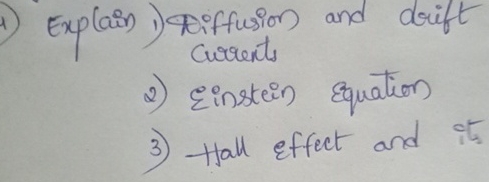 1) Explain 1) Diffusion and drift
Currents
2) Einstein Equation
3) Hall effect and its